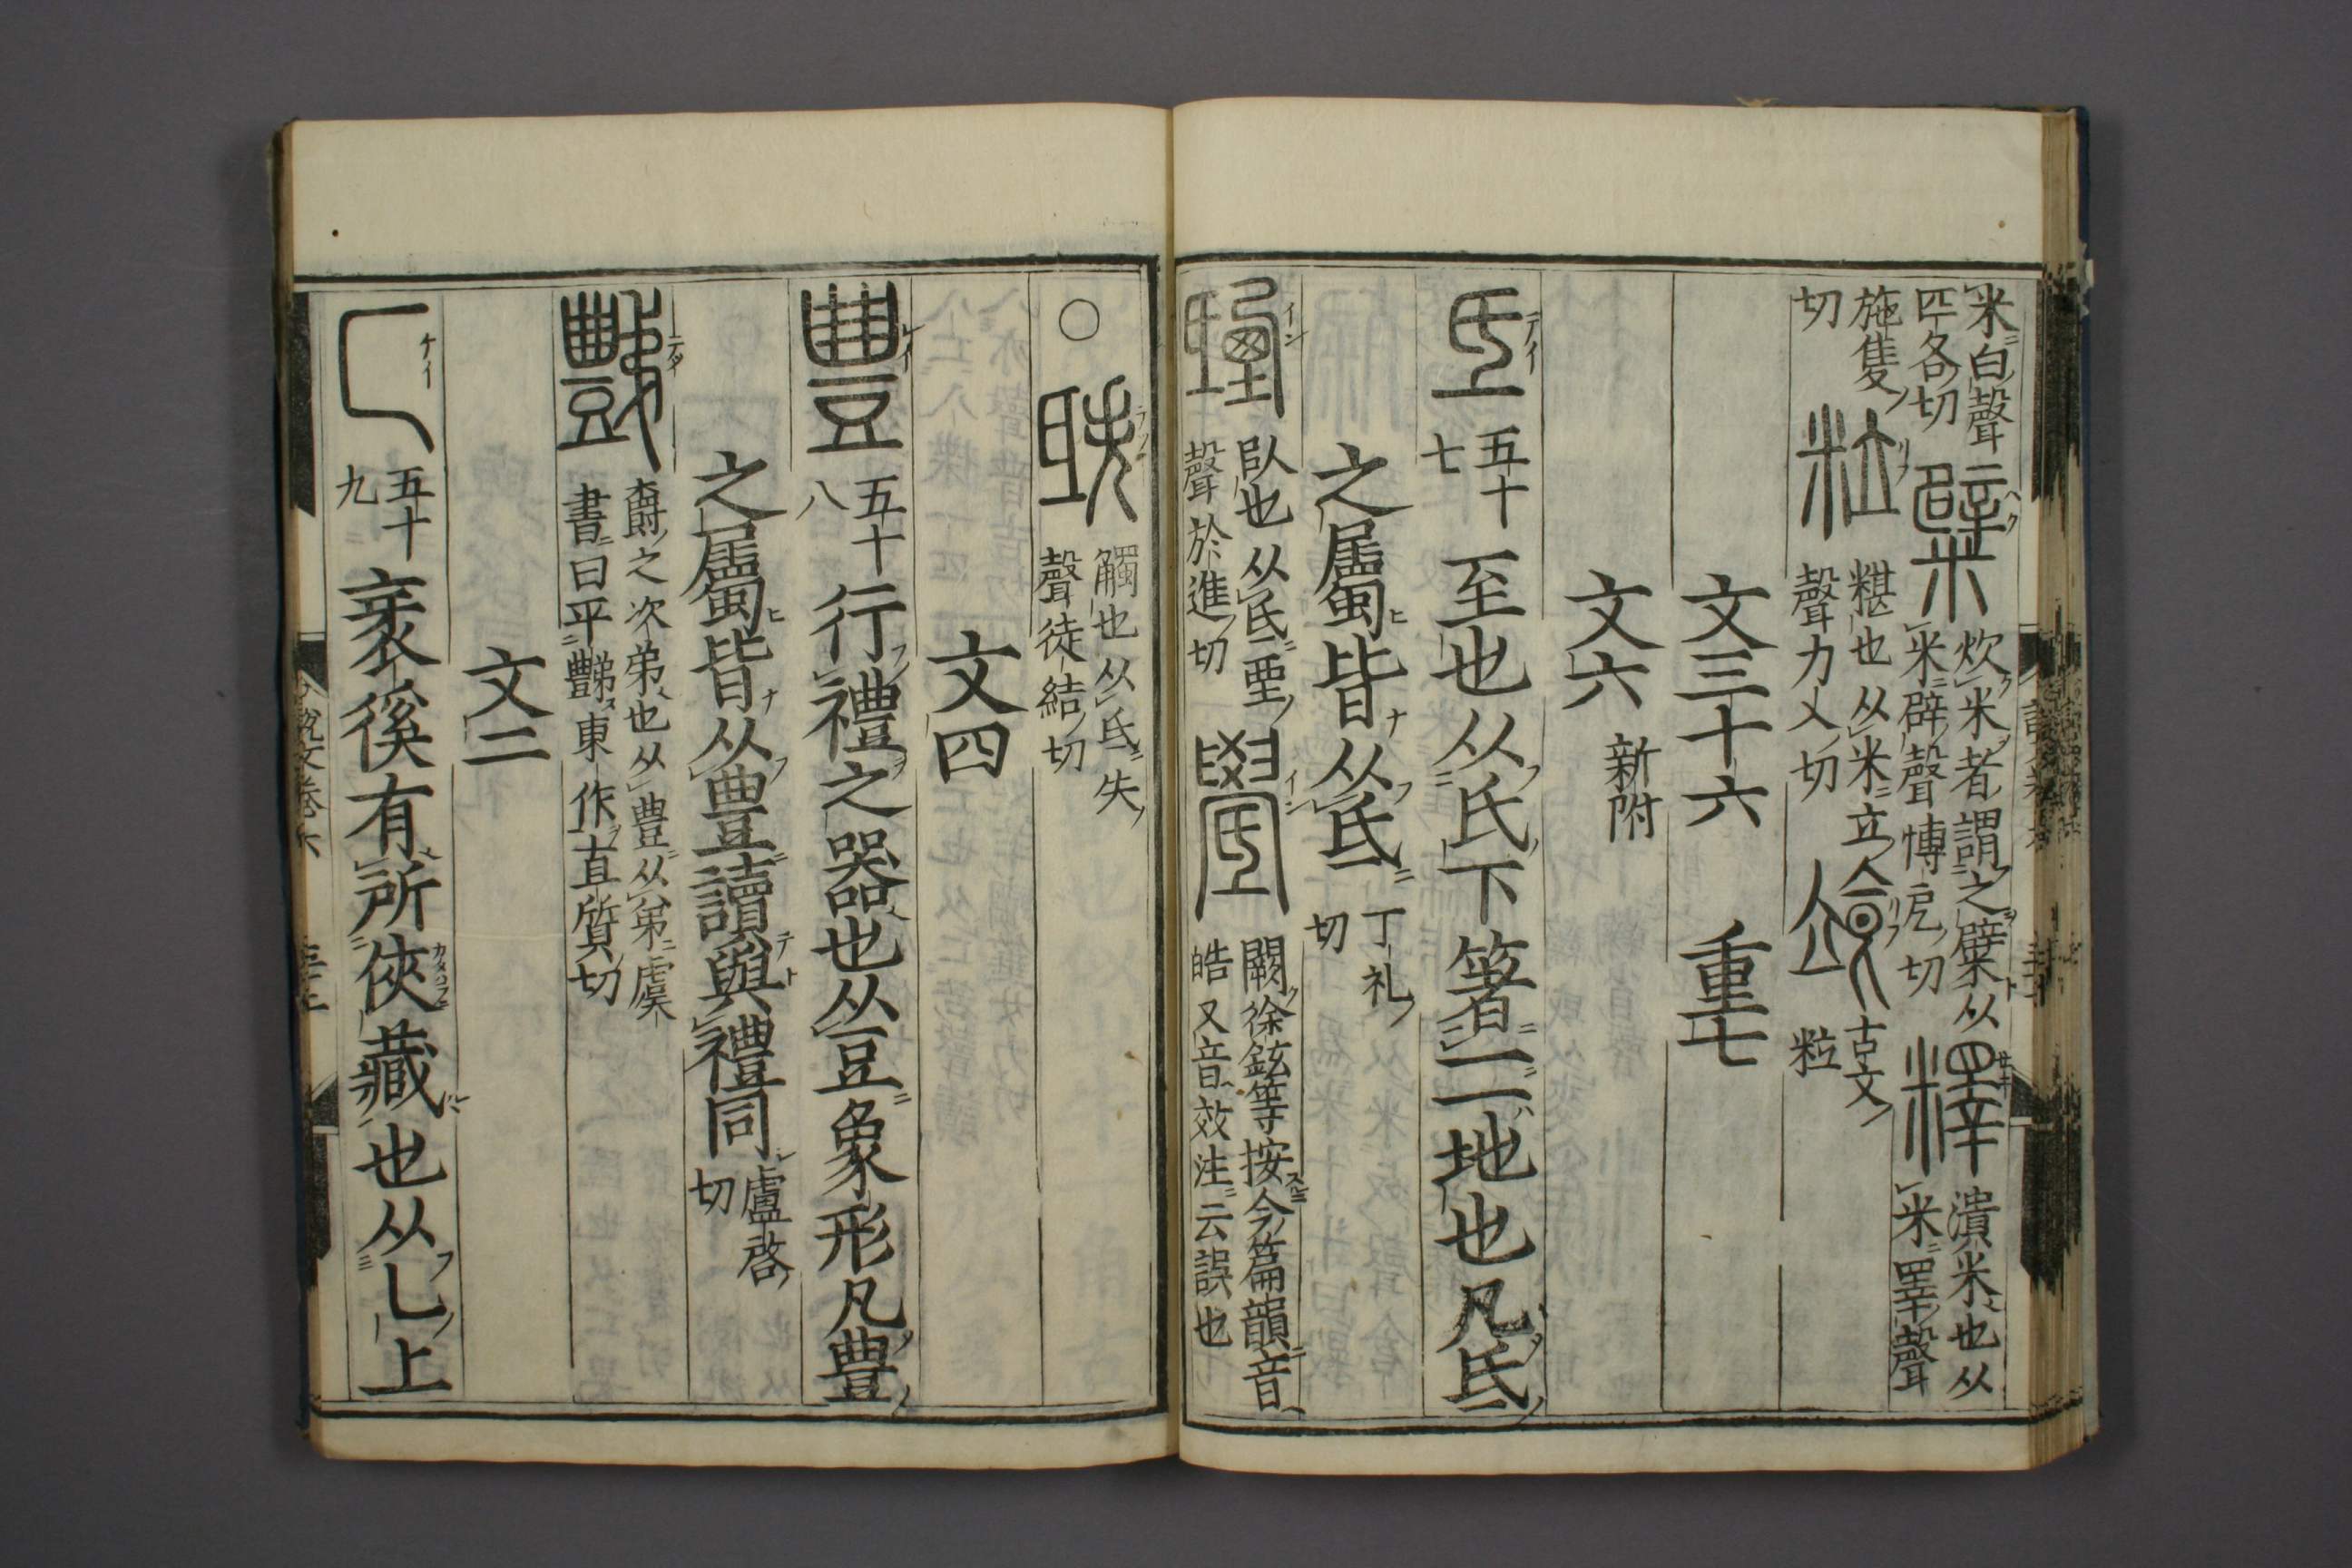 米白聲
匹各切
糪
炊米者謂之糪从
米辟聲博戹切
釋
漬米也从
米睪聲
施隻
切
粒
糂也从米立
聲力入切
古文
粒
文三十六 重七
文六 新附
氐 五十
七 至也从氏下箸一一地也凡氐
之屬皆从氐 丁礼
切
臥也从氐垔
聲於進切
闕徐鉉等按今篇韻音
皓又音效注云誤也
〇 昳
觸也从氐失
聲徒結切
文四
豊 五十
八 行禮之器也从豆象形凡豊
之屬皆从豊讀與禮同 盧啓
切
豑
爵之次弟也从豊从弟虞
書曰平豑東作直質切
文二
匸 五十
九 衺徯有所俠藏也从乚上